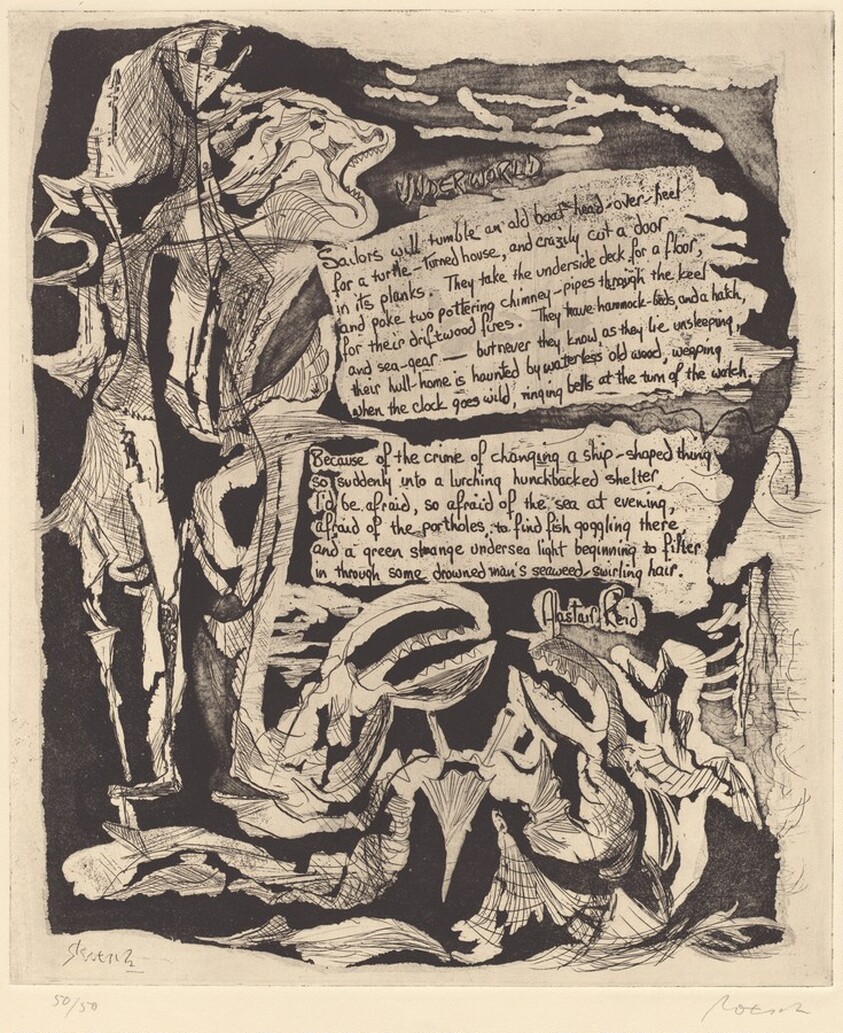 UNDERWORLD
Sailors will tumble an old boat head-over-heel
for a turtle-turned house, and crazily cut a door
in its planks. They take the underside deck for a floor,
and poke two pottering chimney-pipes through the keel
for their driftwood fires. They have hammock-beds and a hatch,
and sea-gear — but never they know, as they lie unsleeping,
their hull-home is haunted by waterless old wood, weeping
when the clock goes wild, ringing bells at the turn of the watch.
Because of the crime of changing a ship-shaped thing
so suddenly into a lurching hunchbacked shelter
I'd be afraid, so afraid of the sea at evening,
afraid of the portholes, to find fish goggling there,
and a green strange undersea light beginning to filter
in through some drowned man's seaweed-swirling hair.
Alastair Reid
50/50